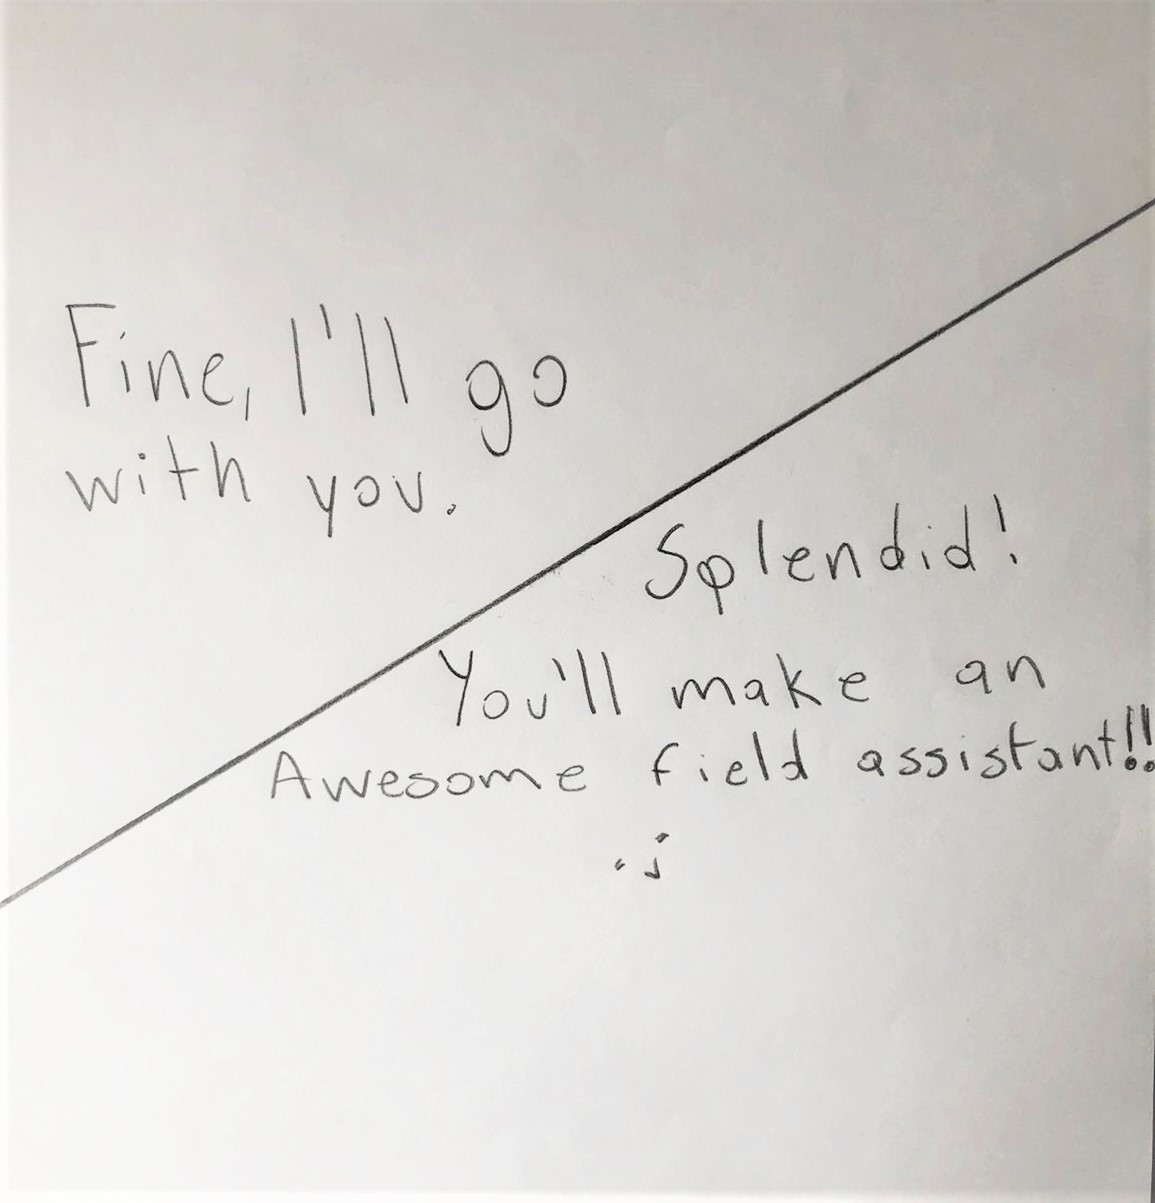 Fine, I'll go
with you.
Splendid!
You'll make an
Awesome field assistant!!